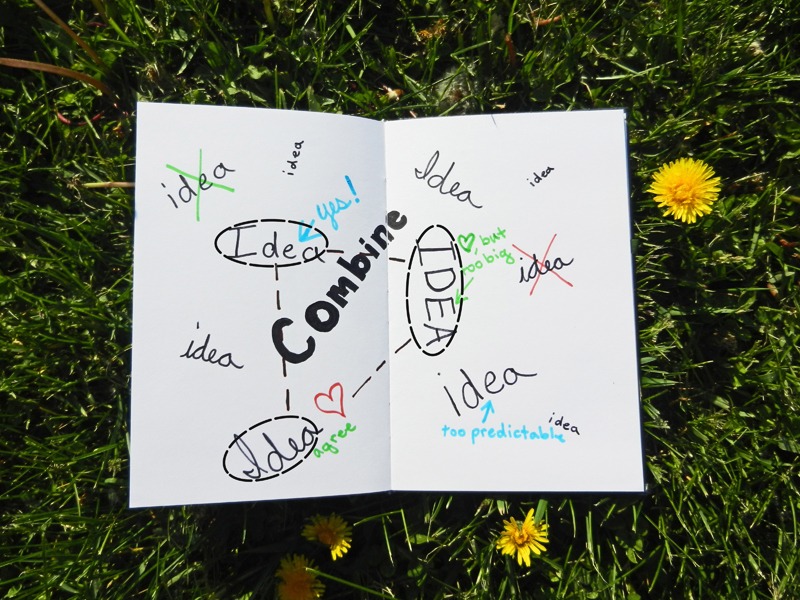 idea
idea
yes!
Idea
Combine
idea
Idea
agree
Idea
idea
IDEA
but
too big
idea
idea
too predictable
idea